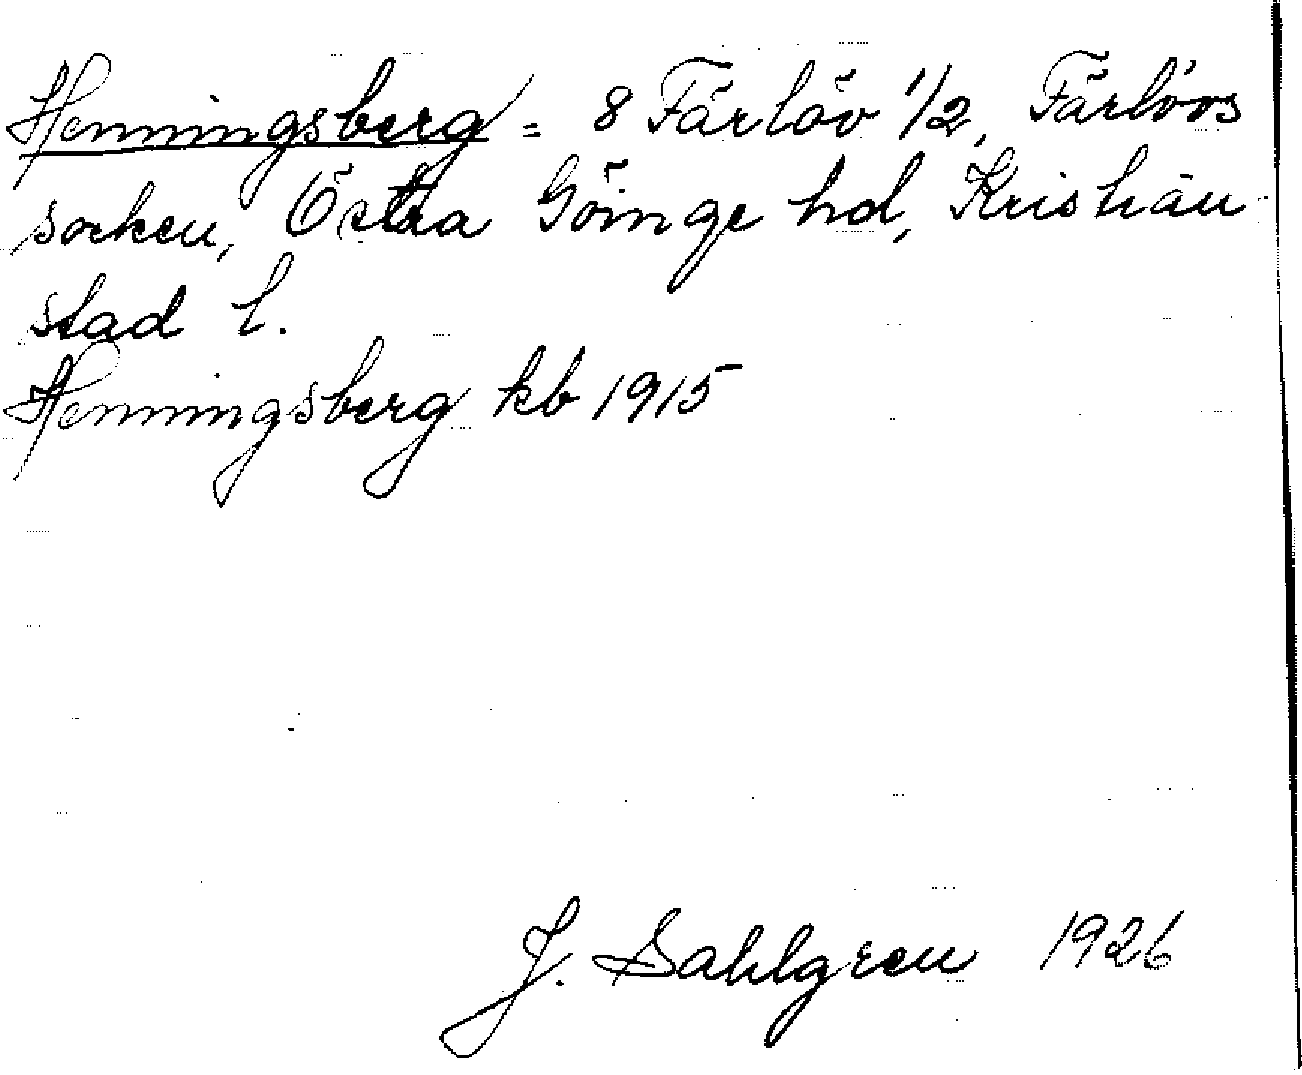 Henningsberg = 8 Färlöv 1/2, Färlövs
socken, Östra Göinge hd, Kristian-
stad l.
Henningsberg kb 1915
J. Sahlgren 1926